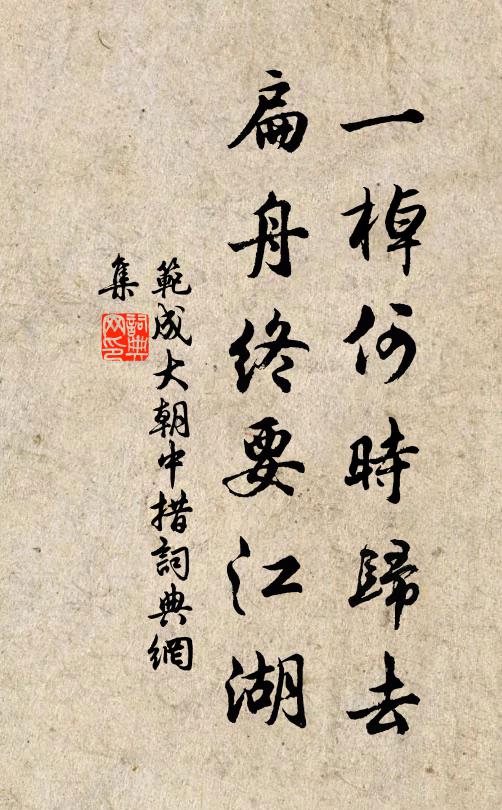 一棹何時歸去
扁舟終要江湖
範成大朝中措詞典網
集
詞典
网印